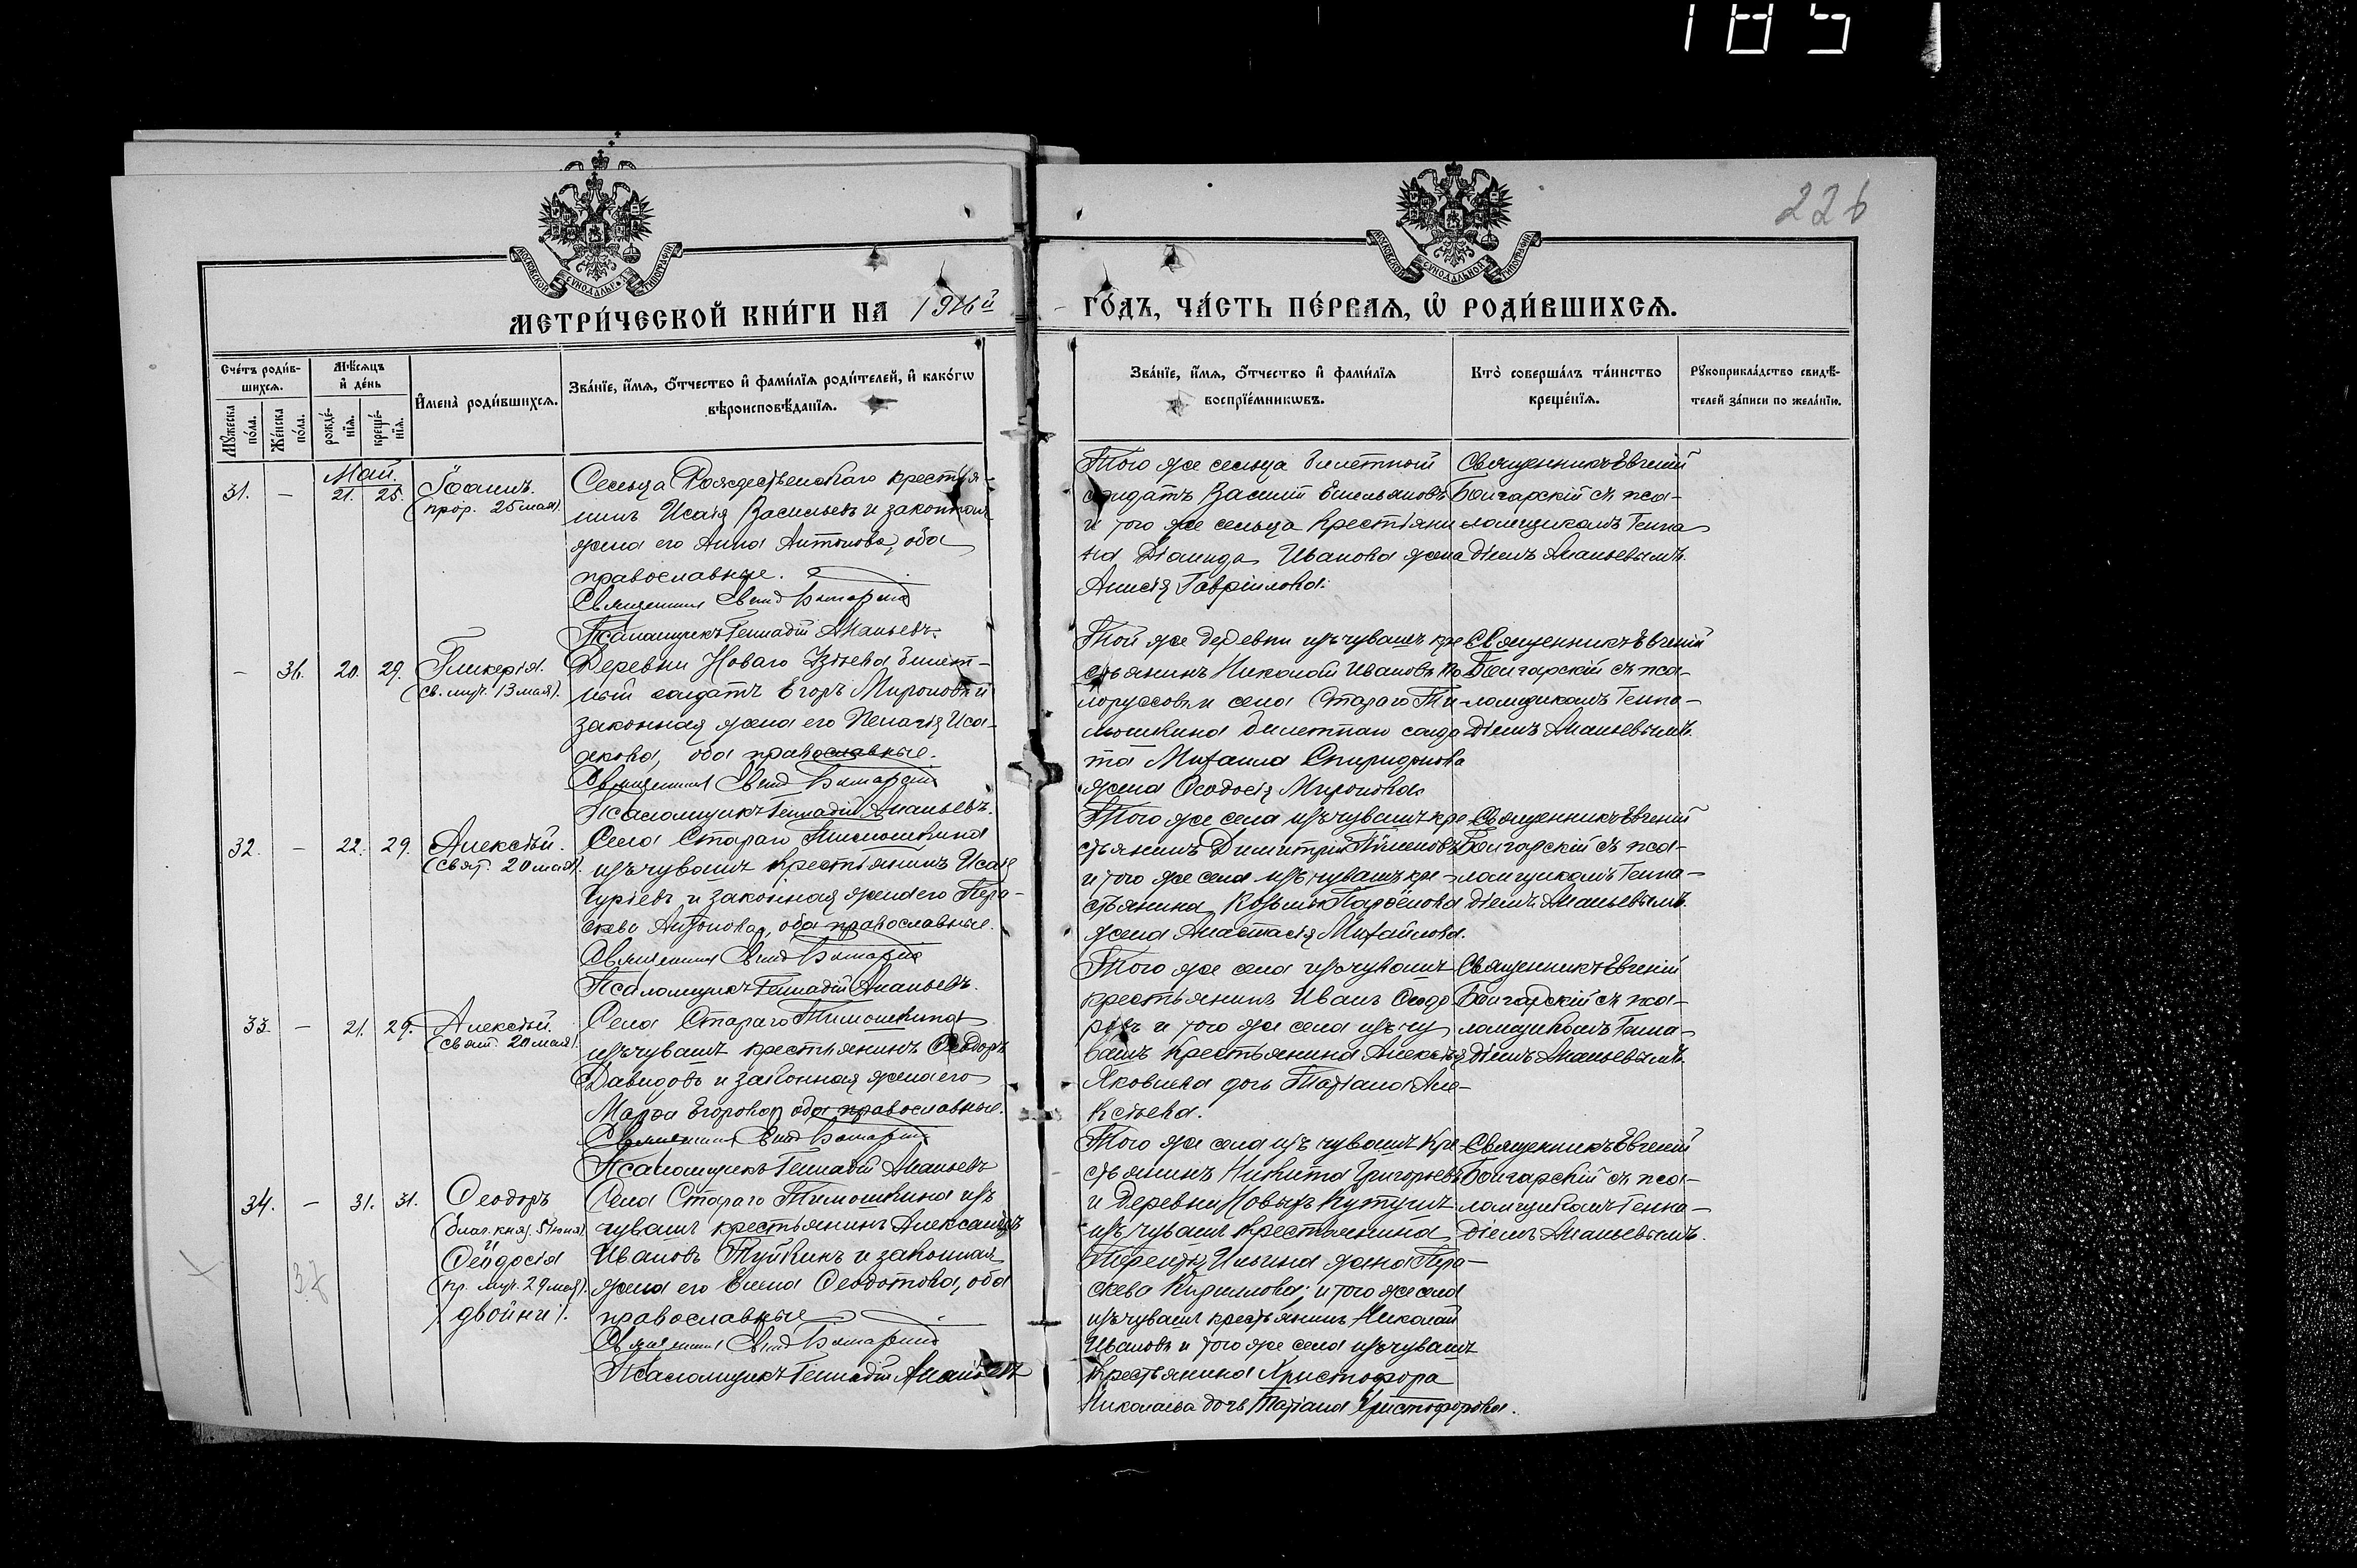 1851
226
МОСКОВСКОЙ СѴНОДАЛЬНОЙ ТИПОГРАФІИ
МОСКОВСКОЙ СѴНОДАЛЬНОЙ ТИПОГРАФІИ
МЕТРИ́ЧЕСКОЙ КНИ́ГИ НА 1916й
ГО́ДЪ, ЧА́СТЬ ПЕ́РВАЯ, Ѡ РОДИ́ВШИХСЯ.
Сче́тъ роди́в-
шихся.
Мꙋ́жеска по́ла.
Же́нска по́ла.
Мѣ́сяцъ и де́нь
рожде́-нїя.
креще́-нїя.
Имена̀ роди́вшихся.
Зва́нїе, и́мя, о́тчество и фами́лїя роди́телей, и како́гѡ
вѣроисповѣ́данїя.
Зва́нїе, и́мя, о́тчество и фами́лїя
воспрїе́мникѡвъ.
Кто̀ соверша́лъ та́инство
креще́нїя.
Рꙋкоприкла́дство свидѣ́-
телей за́писи по жела́нїю.
Май.
31. — 21. 25. Іоаннъ.
(прор. 25 мая).
Сельца Рождественскаго крестья-
нинъ Исаія Васильевъ и законная
жена его Анна Антонова, оба
православные.
Священникъ Евгеній Болгарскій
Псаломщикъ Геннадій Ананьевъ.
Того же сельца билетный
солдатъ Василій Емельяновъ
и того же сельца крестьяни
на Діомида Иванова жена
Анисія Гавріилова.
Священникъ Евгеній
Болгарскій съ пса-
ломщикомъ Генна
діемъ Ананьевымъ.
— 36. 20. 29. Гликерія.
(св. муч. 13 мая).
Деревни Новаго Узѣева билет-
ный солдатъ Егоръ Мироновъ и
законная жена его Пелагія Иса-
акова, оба православные.
Священникъ Евгеній Болгарскій
Псаломщикъ Геннадій Ананьевъ.
Той же деревни изъ чувашъ кре
стьянинъ Николай Ивановъ
и села Стараго Ти-
мошкина билетнаго солда
та Михаила Спиридонова
жена Ѳеодосія Миронова.
Священникъ Евгеній
Болгарскій съ пса-
ломщикомъ Генна-
діемъ Ананьевымъ.
32. — 22. 29. Алексѣй.
(свят. 20 мая).
Села Стараго Тимошкина
изъ чувашъ крестьянинъ Исаія
Гуріевъ и законная жена его Пара-
скева Антонова, оба православные.
Священникъ Евгеній Болгарскій
Псаломщикъ Геннадій Ананьевъ.
Того же села изъ чувашъ кре
стьянинъ Димитрій Пименовъ
и того же села изъ чувашъ кре-
стьянина Козьмы Парѳенова
жена Анастасія Михайлова.
Священникъ Евгеній
Болгарскій съ пса-
ломщикомъ Генна-
діемъ Ананьевымъ.
33. — 21. 29. Алексѣй.
(свят. 20 мая).
Села Стараго Тимошкина
изъ чувашъ крестьянинъ Ѳеодоръ
Давидовъ и законная жена его
Марѳа Егорова, оба православные.
Священникъ Евгеній Болгарскій
Псаломщикъ Геннадій Ананьевъ
Того же села изъ чувашъ
крестьянинъ Иванъ Ѳеодо
ровъ и того же села изъ чу
вашъ крестьянина Алексѣя
Яковлева дочь Татіана Але-
ксѣева.
Священникъ Евгеній
Болгарскій съ пса-
ломщикомъ Генна-
діемъ Ананьевымъ.
34. — 31. 31. Ѳеодоръ
(благ. княз. 5 іюня).
37 Ѳеодосія
(пр. муч. 29 мая).
/двойни/.
Села Стараго Тимошкина изъ
чувашъ крестьянинъ Александръ
Ивановъ Туйкинъ и законная
жена его Елена Ѳеодотова, оба
православные
Священникъ Евгеній Болгарскій
Псаломщикъ Геннадій Ананьевъ
Того же села изъ чувашъ кре
стьянинъ Никита Григорьевъ
и деревни Новыхъ Кутушъ
изъ чувашъ крестьянина
Терентія Ильина жена Пара-
скева Кириллова; и того же села
изъ чувашъ крестьянинъ Николай
Ивановъ и того же села изъ чувашъ
крестьянина Христофора
Николаева дочь Татіана Христофорова.
Священникъ Евгеній
Болгарскій съ пса-
ломщикомъ Генна-
діемъ Ананьевымъ.